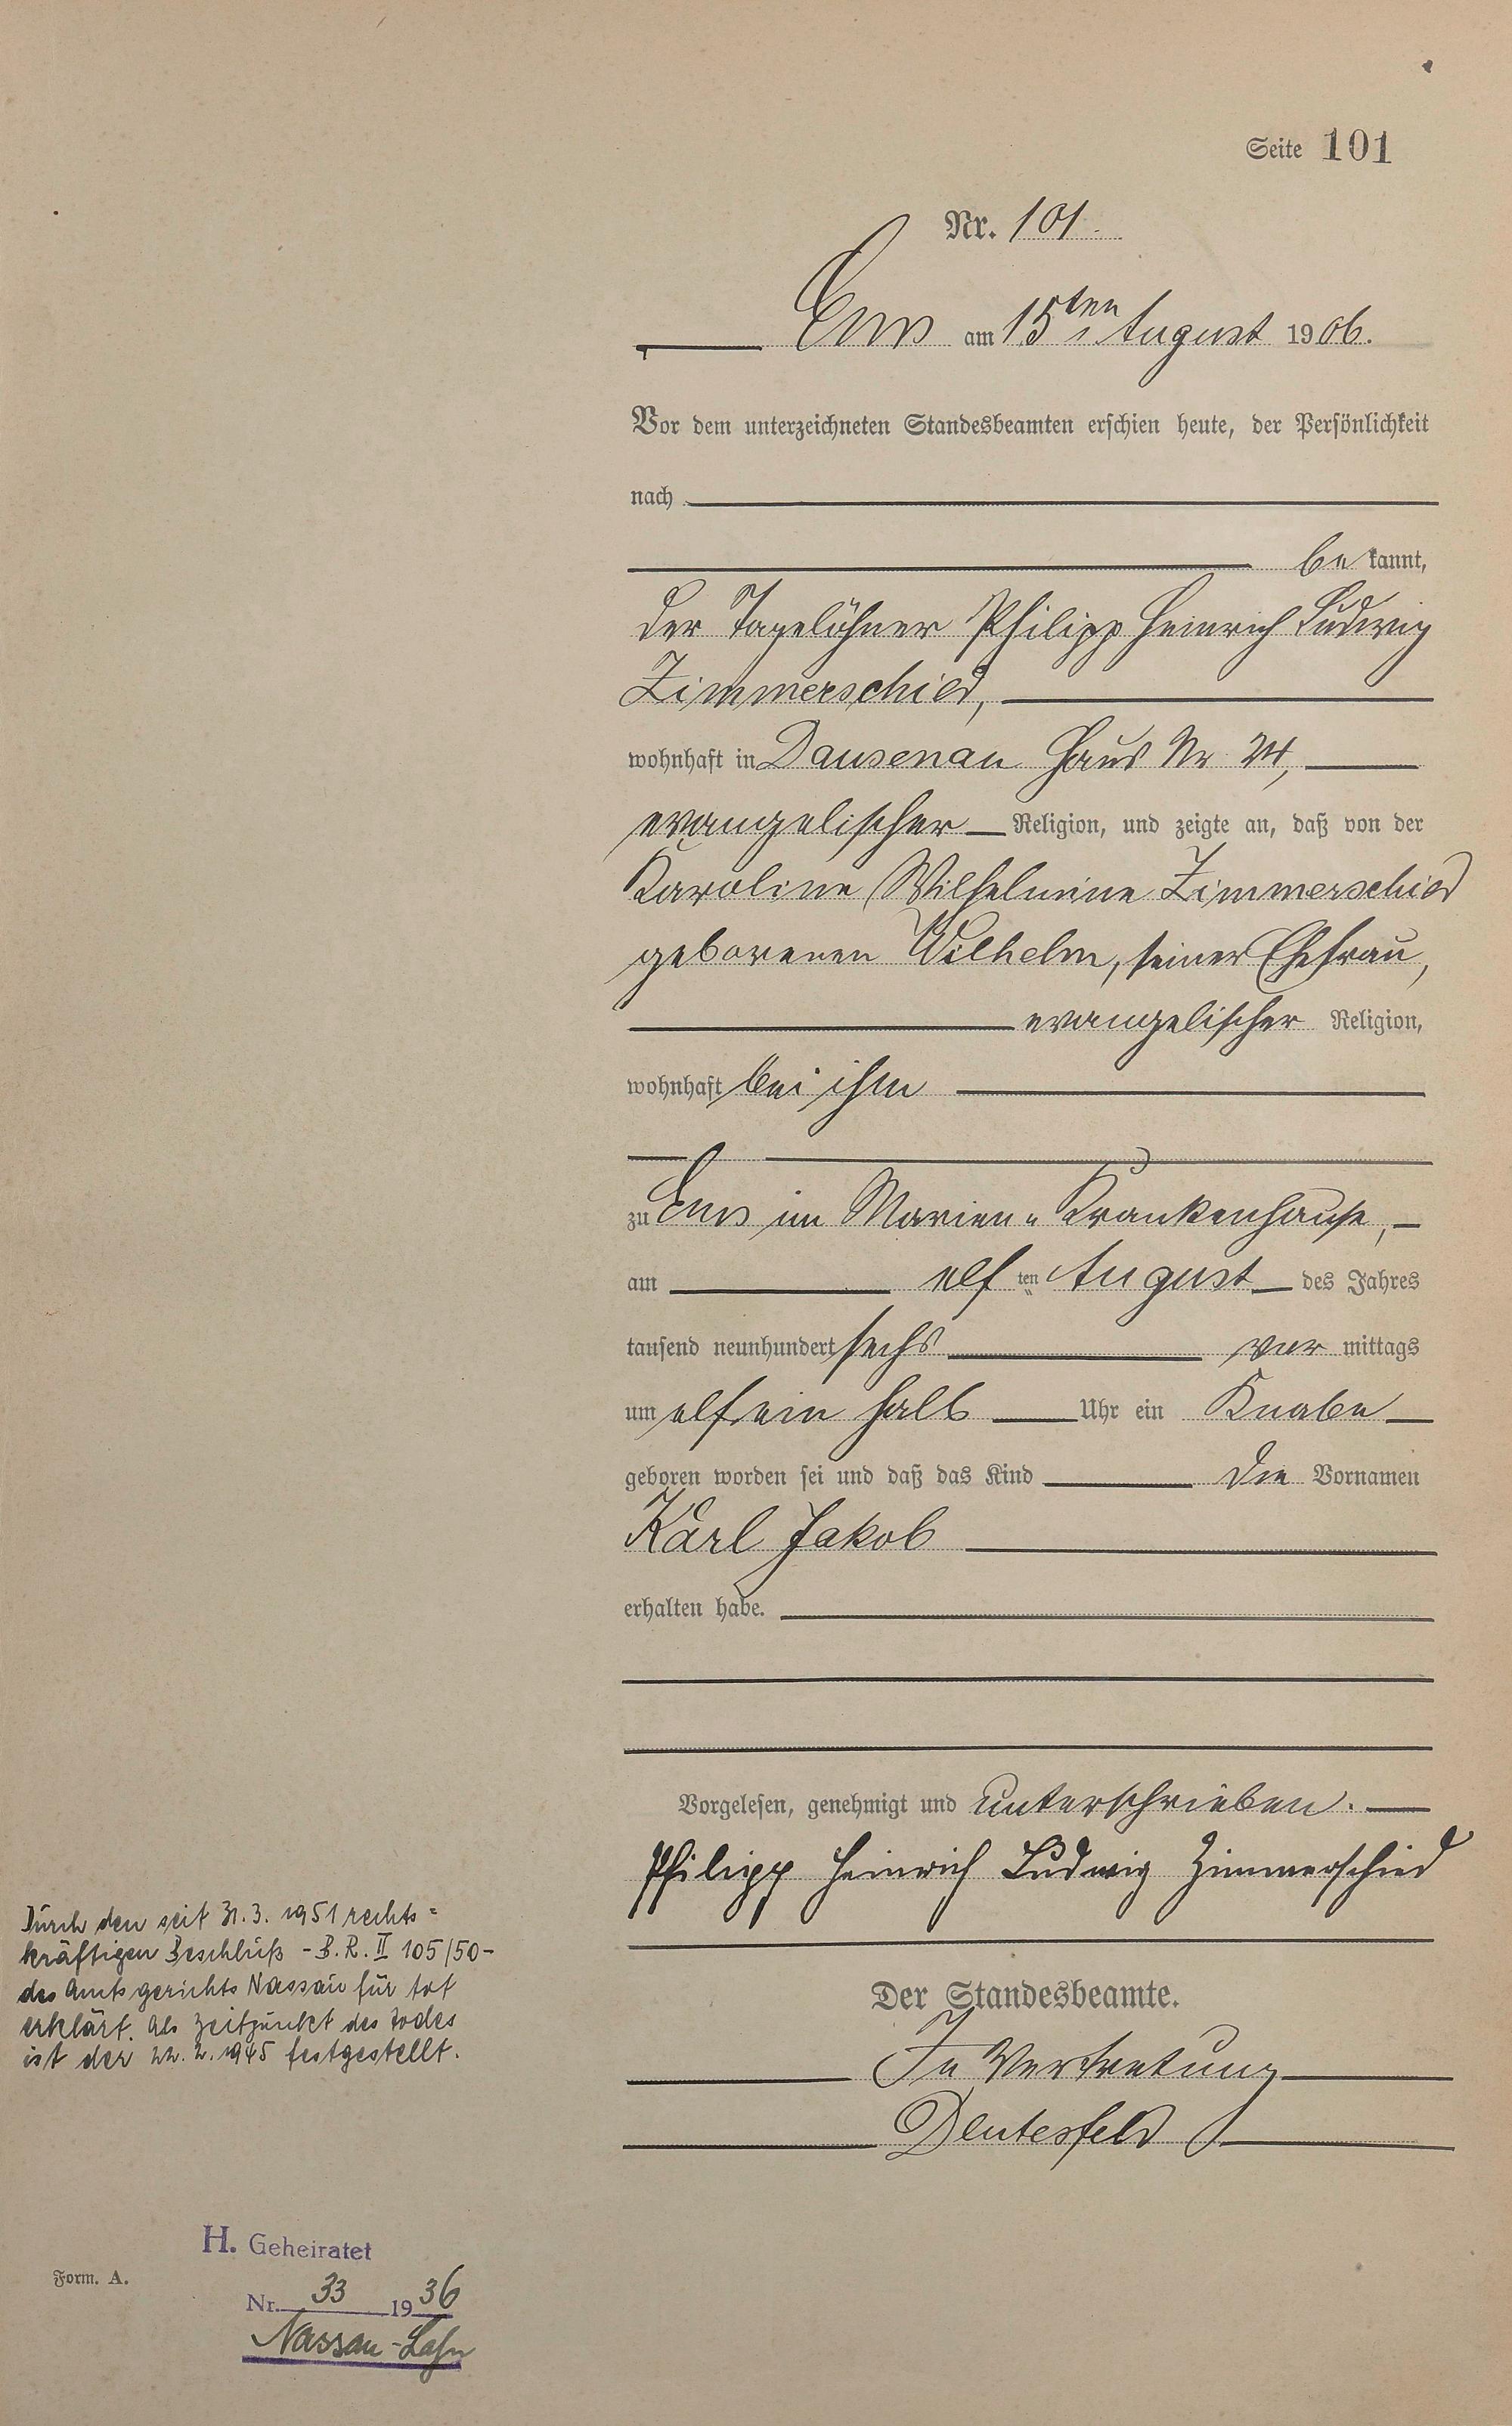 Seite 101
Nr. 101.
Ems am 15ten August 1906.
Vor dem unterzeichneten Standesbeamten erschien heute, der Persönlichkeit
nach
be kannt,
der Tagelöhner Philipp Heinrich Ludwig
Zimmerschied,
wohnhaft in Dausenau Haus Nr 24,
evangelischer Religion, und zeigte an, daß von der
Karoline Wilhelmine Zimmerschied
geborenen Wilhelm, seiner Ehefrau,
evangelischer Religion,
wohnhaft bei ihm
zu Ems im Marien-Krankenhause,
am elf ten August des Jahres
tausend neunhundert sechs vor mittags
um elf ein halb Uhr ein Knabe
geboren worden sei und daß das Kind die Vornamen
Karl Jakob
erhalten habe.
Vorgelesen, genehmigt und unterschrieben.
Philipp Heinrich Ludwig Zimmerschied
Der Standesbeamte.
In Vertretung
Deutesfeld
Durch den seit 31.3.1951 rechts=
kräftigen Beschluß - B.R. II 105/50 -
des Amtsgerichts Nassau für tot
erklärt. Als Zeitpunkt des Todes
ist der 22.2.1945 festgestellt.
H. Geheiratet
Nr. 33 1936
Nassau-Lahn
Form. A.